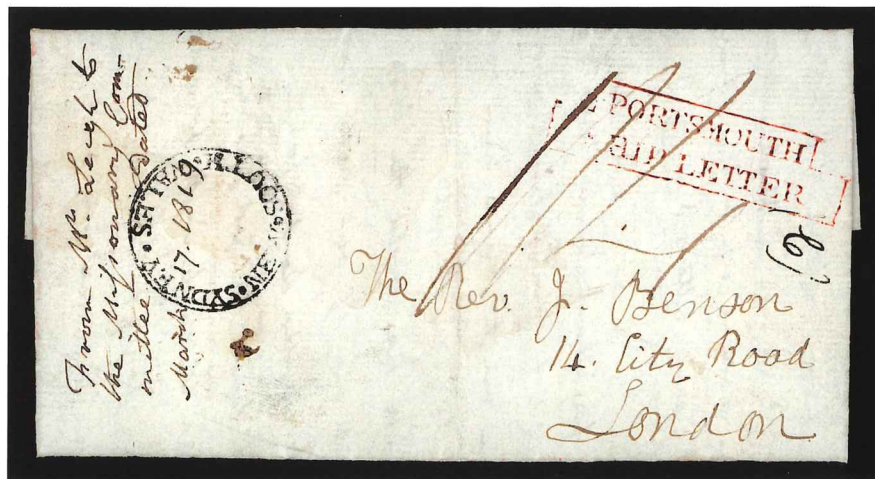 From Mr. Leigh to
the Missionary Com-
mittee Dated
March 17. 1819
SYDNEY · NEW SOUTH WALES ·
PORTSMOUTH
SHIP LETTER
The Rev. J. Benson
14. City Road
London